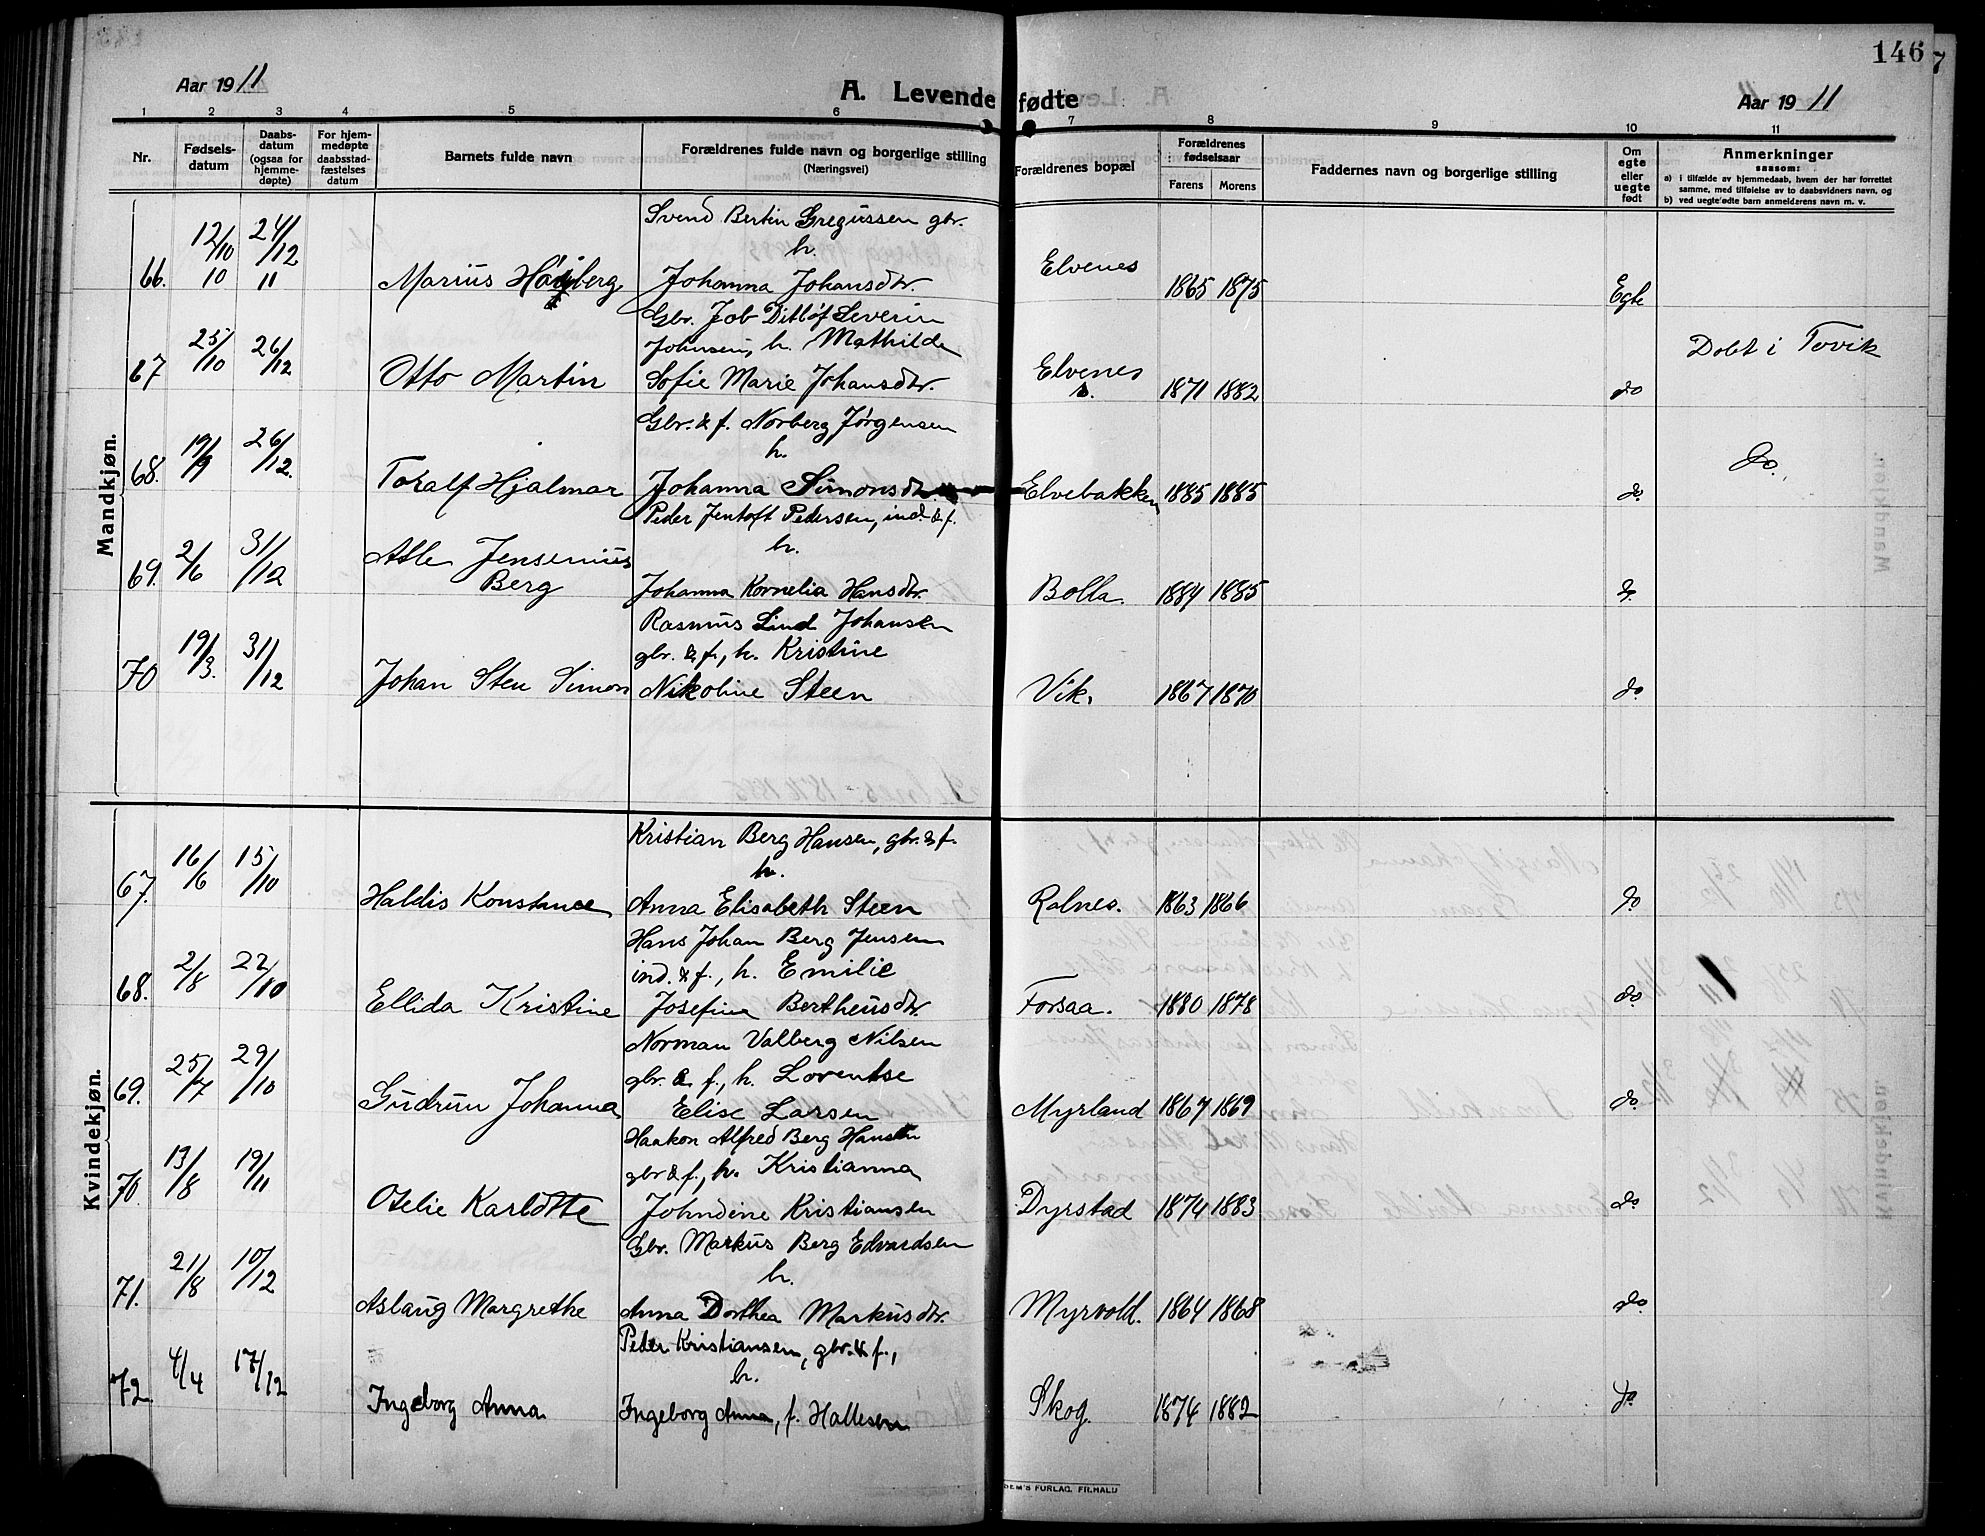 146
7
Aar 1911
A. Levendefødte
Aar 1911
1 2 3 4 5 6 7 8 9 10 11
Nr.
Fødsels-
datum
Daabs-
datum
(ogsaa for
hjemme-
døpte)
For hjem-
medøpte
daabsstad-
fæstelses
datum
Barnets fulde navn
Forældrenes fulde navn og borgerlige stilling
(Næringsvei)
Forældrenes bopæl
Forældrenes
fødselsaar
Farens Morens
Faddernes navn og borgerlige stilling
Om
egte
eller
uegte
født
Anmerkninger
saasom:
a) i tilfælde av hjemmedaab, hvem der har forrettet
samme, med tilføielse av to daabsvidners navn, og
b) ved uegte fødte barn anmelderens navn m. v.
Mandkjøn.
Svend Bertin Gregussen gbr.
12/10 24/12
h.
66. 10 11 Marius Høiberg Johanna Johansdtr. Elvenes 1865 1875 Egte
Gbr. Job Ditløf Severin
25/10 26/12 Johnsen, h. Mathilde
67 Otto Martin Sofie Marie Johansdtr. Elvenes 1871 1882 do Døbt i Tovik
Gbr. & f. Norberg Jørgensen
19/9 26/12. h.
68. Toralf Hjalmar Johanna Simonsdtr Elvebakken 1885 1885 do do.
Peder Jentoft Pedersen, ind. & f.
2/6 31/12 Atle Jensenius h.
69. Berg Johanna Kornelia Hansdtr. Bolla. 1884 1885 do.
Rasmus Lind Johansen
19/3. 31/12 gbr. & f., h. Kristine
70 Johan Sten Simon Nikoline Steen Vik. 1867 1870 do.
Kvindekjøn.
Kristian Berg Hansen, gbr. & f.
16/6 15/10 h.
67. Haldis Konstance Anna Elisabeth Steen Rolnes. 1863 1866 do
Hans Johan Berg Jensen
2/8 22/10 ind. & f., h. Emilie
68. Ellida Kristine Josefine Bertheusdtr. Forsaa. 1880 1878 do.
Norman Valberg Nilsen
25/7 29/10 gbr. & f., h. Lorentse
69. Gudrun Johanna Elise Larsen Myrland 1867 1869 do.
Haakon Alfred Berg Hansen
13/8 19/11 gbr & f., h. Kristianna
70. Otelie Karlotte Johndine Kristiansen Dyrstad 1874 1883 do
Gbr. Markus Berg Edvardsen
21/8 10/12 h.
71. Aslaug Margrethe Anna Dorthea Markusdtr. Myrvold. 1864 1868 do.
Peder Kristiansen, gbr. & f.,
4/4 17/12 h.
72. Ingeborg Anna. Ingeborg Anna, f. Hallesen Skog. 1874 1882 do